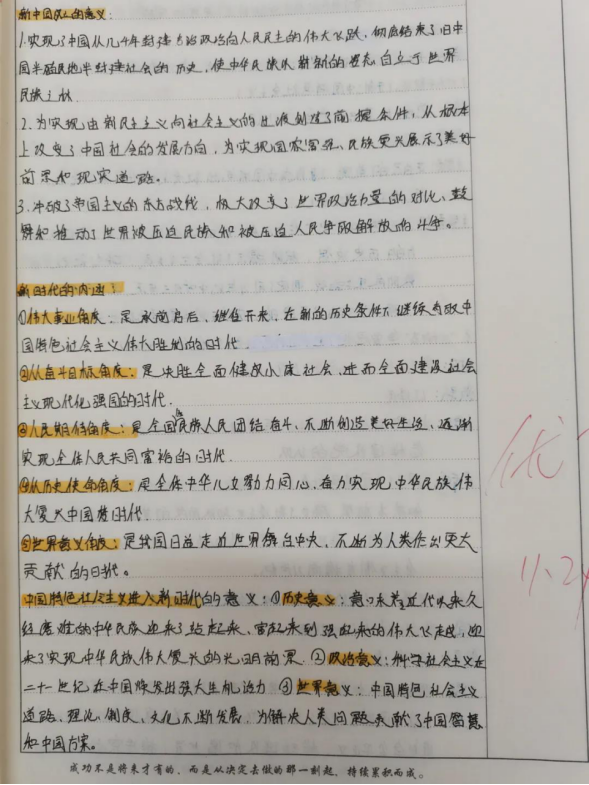 新中国成立的意义：
1.实现了中国从几千年封建专治政治向人民民主的伟大飞跃，彻底结束了旧中
国半殖民地半封建社会的历史，使中华民族以崭新的姿态自立于世界
民族之林.
2.为实现由新民主主义向社会主义的过渡创造了前提条件，从根本
上改变了中国社会的发展方向，为实现国家富强、民族复兴展示了美好
前景和现实道路.
3.冲破了帝国主义的东方战线，极大改变了世界政治力量的对比，鼓
舞和推动了世界被压迫民族和被压迫人民争取解放的斗争。
新时代的内涵：
①伟大事业角度：是承前启后、继往开来、在新的历史条件下继续夺取中
国特色社会主义伟大胜利的时代.
②从奋斗目标角度：是决胜全面建成小康社会，进而全面建设社会
主义现代化强国的时代.
③人民期待角度：是全国各族人民团结奋斗、不断创造美好生活、逐渐
实现全体人民共同富裕的时代.
④从历史使命角度：是全体中华儿女勠力同心，奋力实现中华民族伟
大复兴中国梦时代.
⑤世界意义角度：是我国日益走近世界舞台中央，不断为人类作出更大
贡献的时代。
中国特色社会主义进入新时代的意义：①历史意义：意味着近代以来久
经磨难的中华民族迎来了站起来、富起来到强起来的伟大飞跃，迎
来了实现中华民族伟大复兴的光明前景.②政治意义：科学社会主义在
二十一世纪在中国焕发出强大生机活力 ③世界意义：中国特色社会主义
道路、理论、制度、文化不断发展，为解决人类问题贡献了中国智慧
和中国方案。
优
11.24
成功不是将来才有的，而是从决定去做的那一刻起，持续累积而成。